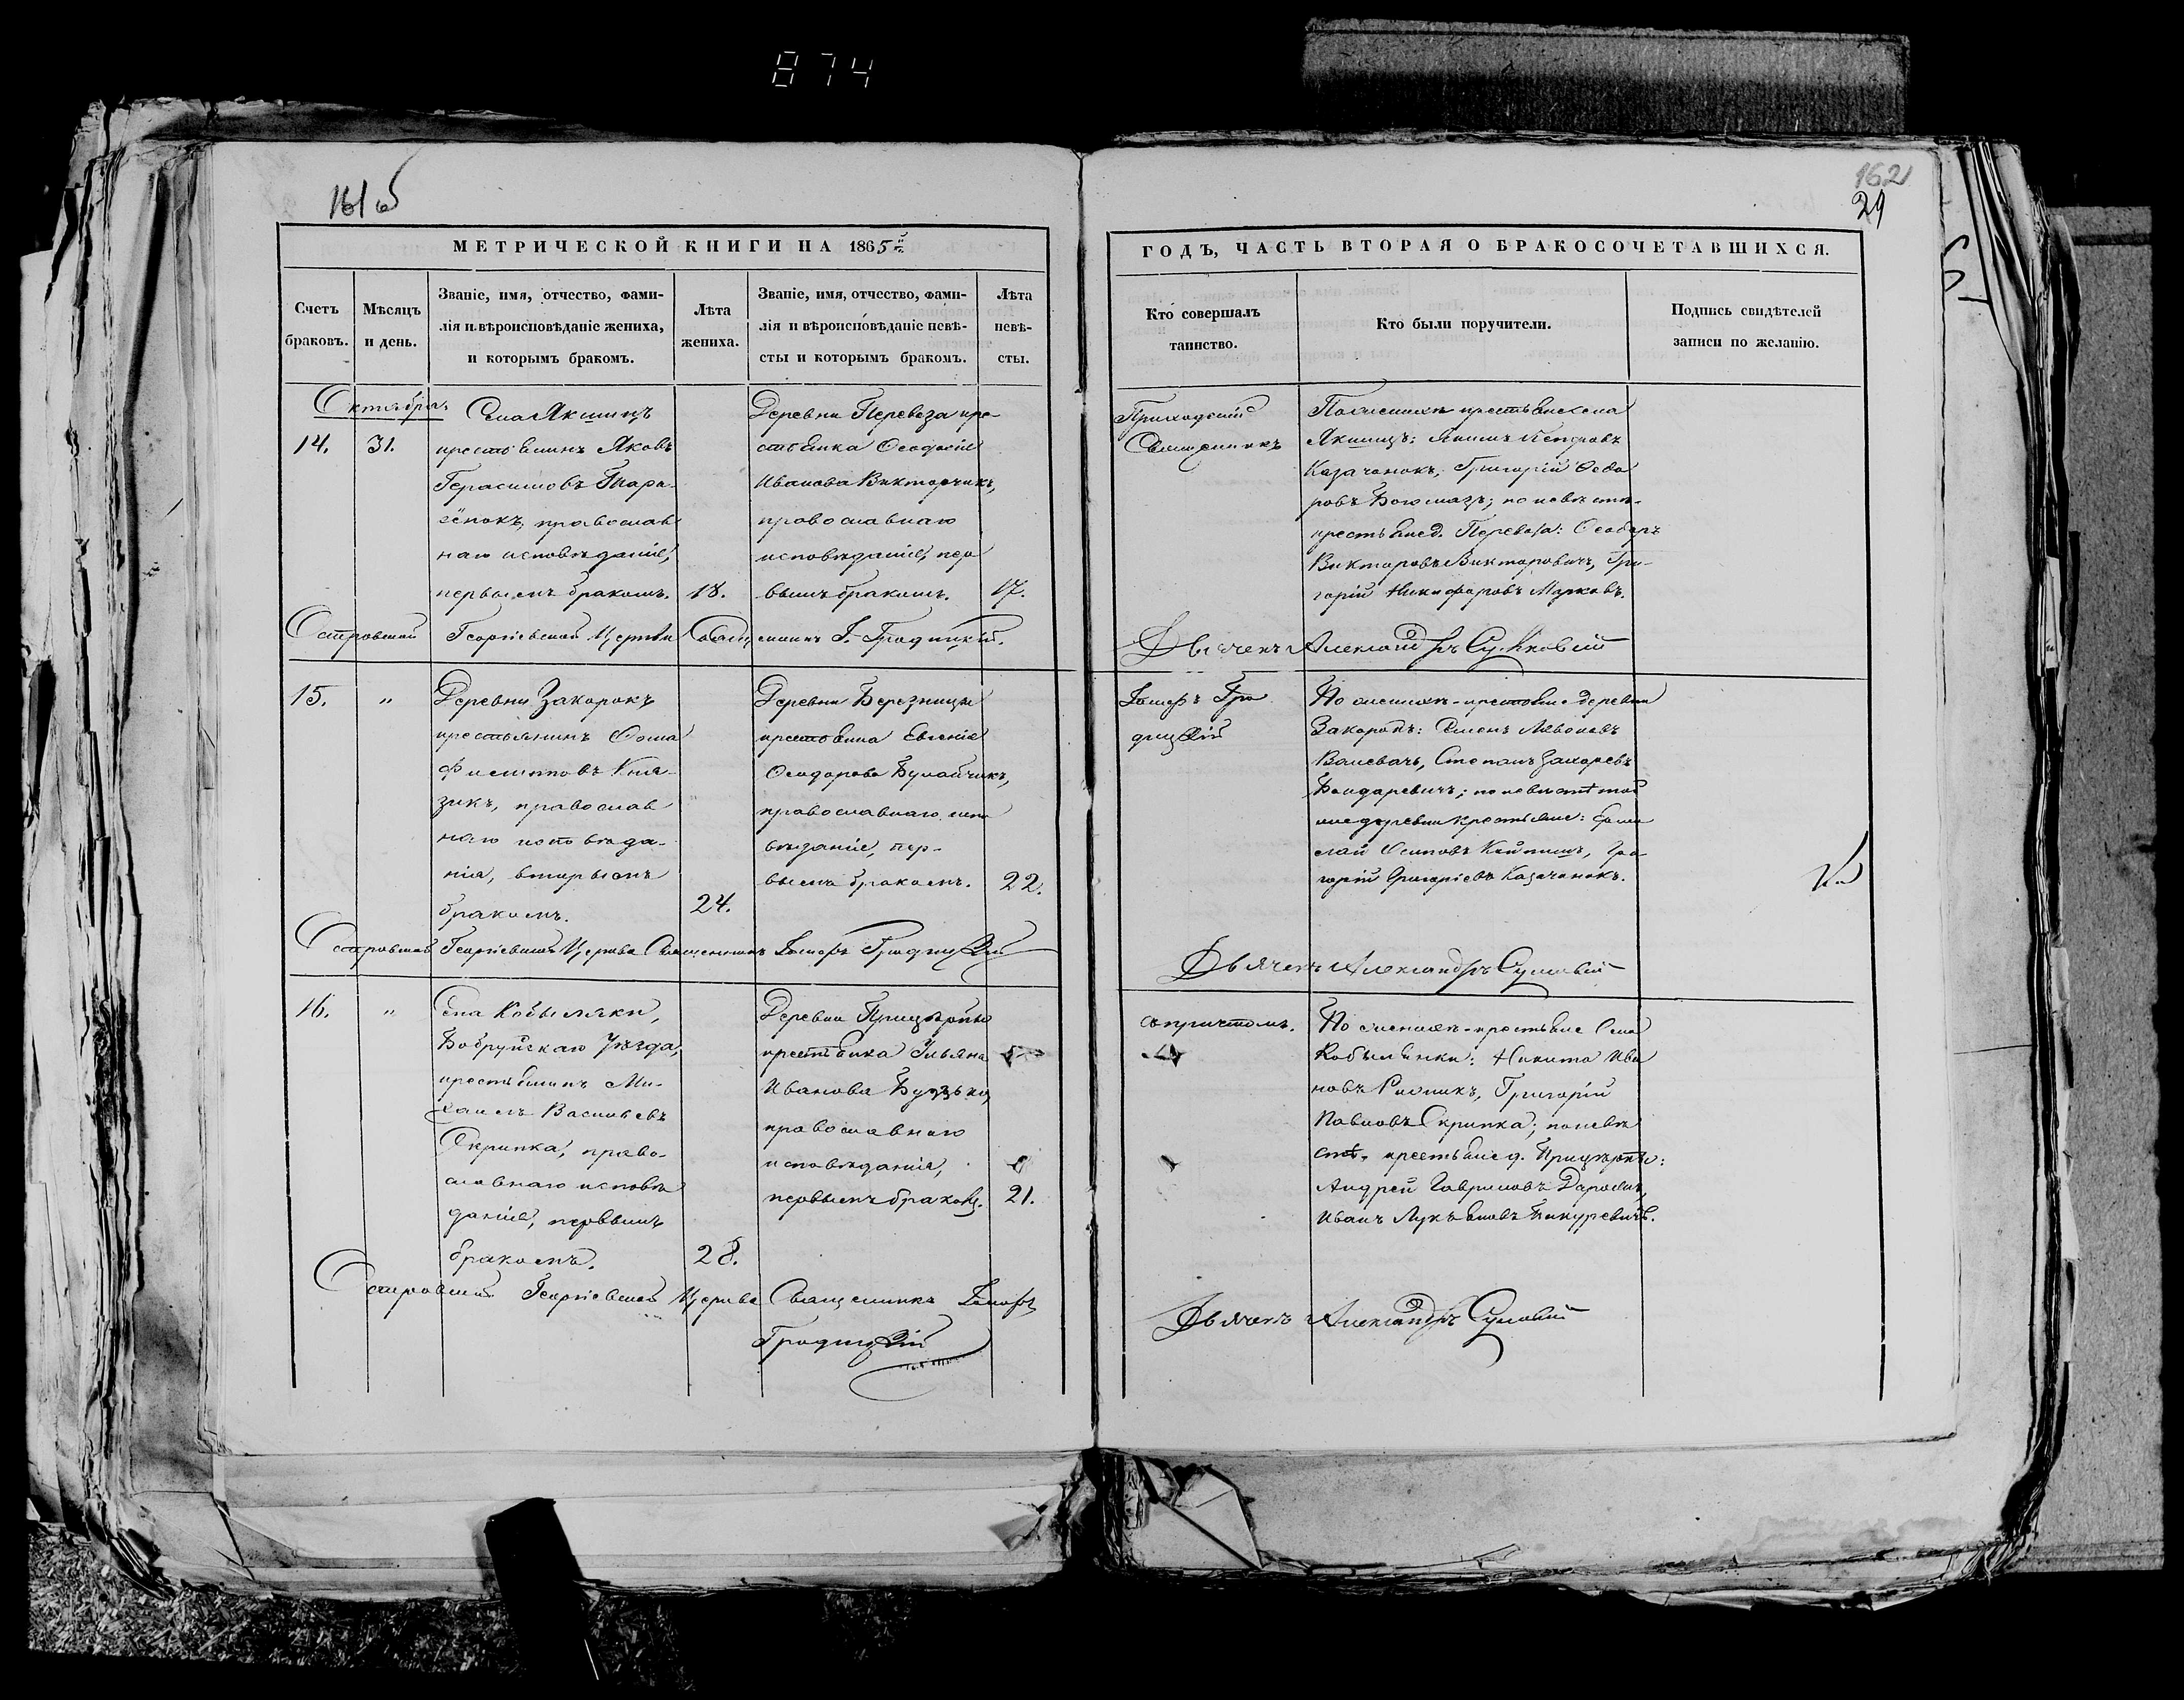 874
161 об
162
29
МЕТРИЧЕСКОЙ КНИГИ НА 1865й
ГОДЪ, ЧАСТЬ ВТОРАЯ О БРАКОСОЧЕТАВШИХСЯ.
Счетъ
браковъ.
Мѣсяцъ
и день.
Званіе, имя, отчество, фами-
лія и вѣроисповѣданіе жениха,
и которымъ бракомъ.
Лѣта
жениха.
Званіе, имя, отчество, фами-
лія и вѣроисповѣданіе невѣ-
сты и которымъ бракомъ.
Лѣта
невѣ-
сты.
Кто совершалъ
таинство.
Кто были поручители.
Подпись свидѣтелей
записи по желанію.
Октября
14.
31.
Села Якшицъ
крестьянинъ Яковъ
Герасимовъ
православ
наго исповѣданія,
первымъ бракомъ.
18.
Деревни Перевоза кре-
стьянка Ѳеодосія
Иванова Викторчикъ,
православнаго
исповѣданія, пер
вымъ бракомъ.
17.
Приходскій
Священникъ
По женихѣ крестьяне села
Якшицъ: Петровъ
Казачонокъ, Григорій Ѳедо
ровъ Богомазъ; по невѣстѣ-
крестьяне д. Перевоза: Ѳеодоръ
Викторовъ Викторовичъ, Гри-
горій Никифоровъ Марковъ.
Островской Георгіевской Церкви Священникъ І. Гродицкій.
Дьячекъ Александръ
15.
"
Деревни Закорокъ
крестьянинъ Ѳома
Филипповъ Кня-
зикъ, православ
наго исповѣда-
нія, вторымъ
бракомъ.
24.
Деревни Березницы
крестьянка Евгенія
Ѳеодорова
православнаго испо
вѣданія, пер-
вымъ бракомъ.
22.
Іосифъ Гро
дицкій
По женихѣ-крестьяне деревни
Закорокъ: Семенъ
Степанъ Захаревъ
Бондаревичъ; по невѣстѣ той
же деревни крестьяне:
Осиповъ Гри
горій Григоріевъ Казачонокъ.
Островской Георгіевской Церкви Священникъ Іосифъ Гродицкій
Дьячекъ Александръ
16.
"
Села Кобылянки,
Бобруйскаго Уѣзда,
крестьянинъ Ми-
хаилъ Васильевъ
Скрипка, право-
славнаго исповѣ
данія, первымъ
бракомъ.
28.
Деревни
крестьянка Ульяна
Иванова
православнаго
исповѣданія,
первымъ бракомъ.
21.
съ причтомъ.
По женихѣ-крестьяне Села
Кобылянки: Никита Ива
новъ Григорій
Павловъ Скрипка; по невѣ
стѣ-крестьяне д.
Андрей Гавриловъ
Иванъ Лукьяновъ
Островской Георгіевской Церкви Священникъ Іосифъ
Гродицкій
Дьячекъ Александръ